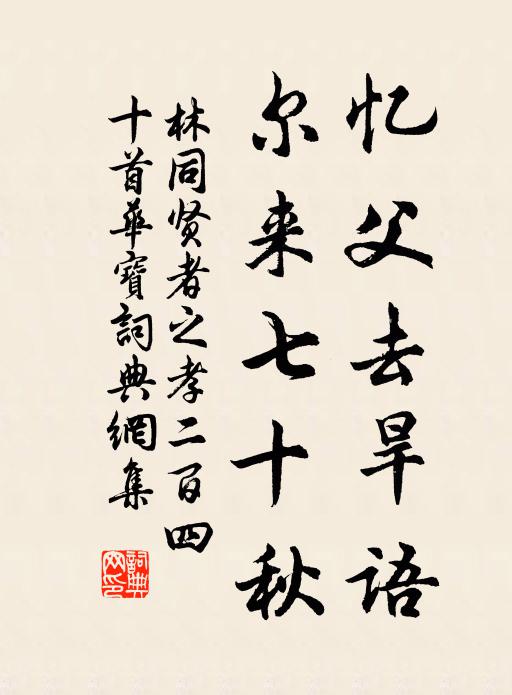 忆父去旱语
尔来七十秋
林同贤者之孝二百四
十首华宝词典網集
詞典網印